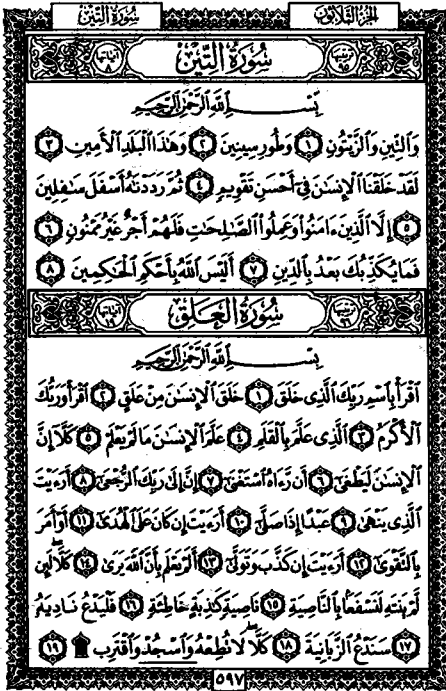 سُورَةُ التِّينِ الجُزْءُ الثَّلَاثُونَ
ترتيبها ٩٥ سُورَةُ التِّينِ آياتها ٨
بِسْمِ اللَّهِ الرَّحْمَٰنِ الرَّحِيمِ
وَالتِّينِ وَالزَّيْتُونِ ١ وَطُورِ سِينِينَ ٢ وَهَٰذَا الْبَلَدِ الْأَمِينِ ٣
لَقَدْ خَلَقْنَا الْإِنسَٰنَ فِي أَحْسَنِ تَقْوِيمٍ ٤ ثُمَّ رَدَدْنَٰهُ أَسْفَلَ سَٰفِلِينَ
٥ إِلَّا الَّذِينَ ءَامَنُوا وَعَمِلُوا الصَّٰلِحَٰتِ فَلَهُمْ أَجْرٌ غَيْرُ مَمْنُونٍ ٦
فَمَا يُكَذِّبُكَ بَعْدُ بِالدِّينِ ٧ أَلَيْسَ اللَّهُ بِأَحْكَمِ الْحَٰكِمِينَ ٨
ترتيبها ٩٦ سُورَةُ العَلَقِ آياتها ١٩
بِسْمِ اللَّهِ الرَّحْمَٰنِ الرَّحِيمِ
اقْرَأْ بِاسْمِ رَبِّكَ الَّذِي خَلَقَ ١ خَلَقَ الْإِنسَٰنَ مِنْ عَلَقٍ ٢ اقْرَأْ وَرَبُّكَ
الْأَكْرَمُ ٣ الَّذِي عَلَّمَ بِالْقَلَمِ ٤ عَلَّمَ الْإِنسَٰنَ مَا لَمْ يَعْلَمْ ٥ كَلَّا إِنَّ
الْإِنسَٰنَ لَيَطْغَىٰ ٦ أَن رَّءَاهُ اسْتَغْنَىٰ ٧ إِنَّ إِلَىٰ رَبِّكَ الرُّجْعَىٰ ٨ أَرَءَيْتَ
الَّذِي يَنْهَىٰ ٩ عَبْدًا إِذَا صَلَّىٰ ١٠ أَرَءَيْتَ إِن كَانَ عَلَى الْهُدَىٰ ١١ أَوْ أَمَرَ
بِالتَّقْوَىٰ ١٢ أَرَءَيْتَ إِن كَذَّبَ وَتَوَلَّىٰ ١٣ أَلَمْ يَعْلَم بِأَنَّ اللَّهَ يَرَىٰ ١٤ كَلَّا لَئِن
لَّمْ يَنتَهِ لَنَسْفَعًا بِالنَّاصِيَةِ ١٥ نَاصِيَةٍ كَٰذِبَةٍ خَاطِئَةٍ ١٦ فَلْيَدْعُ نَادِيَهُ
١٧ سَنَدْعُ الزَّبَانِيَةَ ١٨ كَلَّا لَا تُطِعْهُ وَاسْجُدْ وَاقْتَرِب ۩ ١٩
٥٩٧